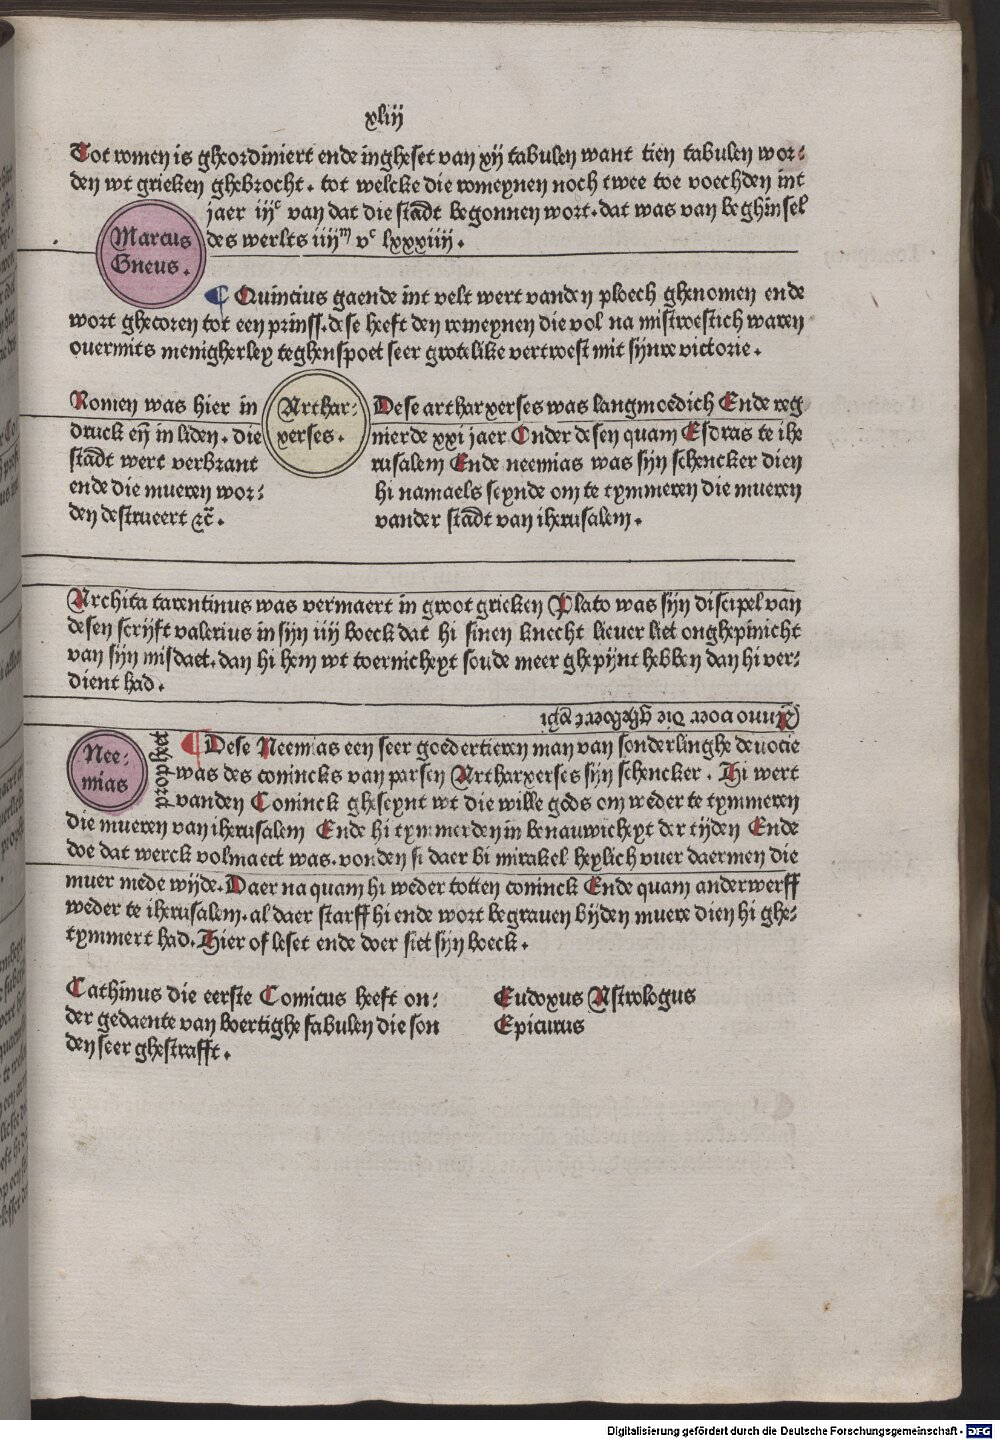 xliij
Tot romen is gheordiniert ende ingheset van xij tabulen want tien tabulen wor⸗
den wt grieken ghebrocht. tot welcke die romeynen noch twee toe voechden int
jaer iijᶜ van dat die stadt begonnen wort. dat was van beghinsel
des werlts iiijᵐ vᶜ lxxxiiij.
Marcus
Gneus.
¶ Quincius gaende int velt wert vanden ploech ghenomen ende
wort ghecoren tot een prinss. dese heeft den romeynen die vol na mistroestich waren
ouermits menigherley teghenspoet seer grotelike vertroest mit sijnre victorie.
Romen was hier in
druck eñ in liden. die
stadt wert verbrant
ende die mueren wor⸗
den destrueert ꝛc̃.
Arthar⸗
xerses.
Dese artharxerses was langmoedich Ende reg
nierde xxi jaer Onder desen quam Esdras te ihe
rusalem Ende neemias was sijn schencker dien
hi namaels seynde om te tymmeren die mueren
vander stadt van iherusalem.
Archita tarentinus was vermaert in groot grieken Plato was sijn discipel van
desen scrijft valerius in sijn iiij boeck dat hi sinen knecht lieuer liet onghepinicht
van sijn misdaet. dan hi hem wt toernicheyt soude meer ghepijnt hebben dan hi ver⸗
dient had.
Anno voer die Gheboert xp̃i
Nee⸗
mias
propheet
¶ Dese Neemias een seer goedertieren man van sonderlinghe deuocie
was des conincks van parsen Artharxerses sijn schencker. Hi wert
vanden Coninck gheseynt wt die wille gods om weder te tymmeren
die mueren van iherusalem Ende hi tymmerden in benauwicheyt der tijden Ende
doe dat werck volmaect was. vonden si daer bi mirakel heylich vuer daermen die
muer mede wijde. Daer na quam hi weder totten coninck Ende quam anderwerff
weder te iherusalem. al daer starff hi ende wort begrauen bijden muere dien hi ghe⸗
tymmert had. Hier of leset ende doer siet sijn boeck.
Cathinus die eerste Comicus heeft on⸗
der gedaente van boertighe fabulen die son
den seer ghestrafft.
Eudoxus Astrologus
Epicurus
Digitalisierung gefördert durch die Deutsche Forschungsgemeinschaft - DFG